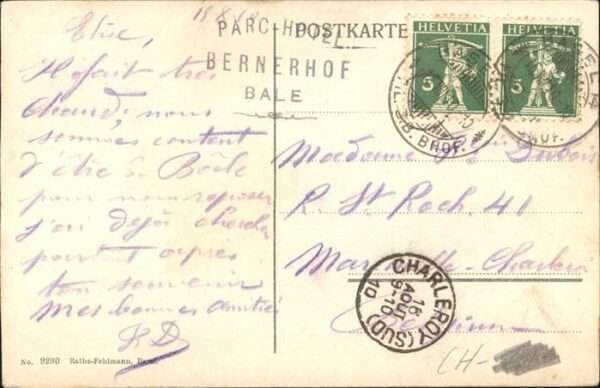 Elise,
Il fait très
chaud, nous
sommes content
d'être à Bâle
pour nous reposer
j'ai déjà cherché
partout après
ton souvenir
mes bonnes amitiés
PARC-HOTEL
BERNERHOF
BALE
POSTKARTE
HELVETIA
5
HELVETIA
5
BASEL
BRIEF
Madame
R. St Roch. 41
Charleroi
CHARLEROY (SUD)
16
AOUT
9-10
10
No. 9290 Rathe-Fehlmann, Basel
CH-